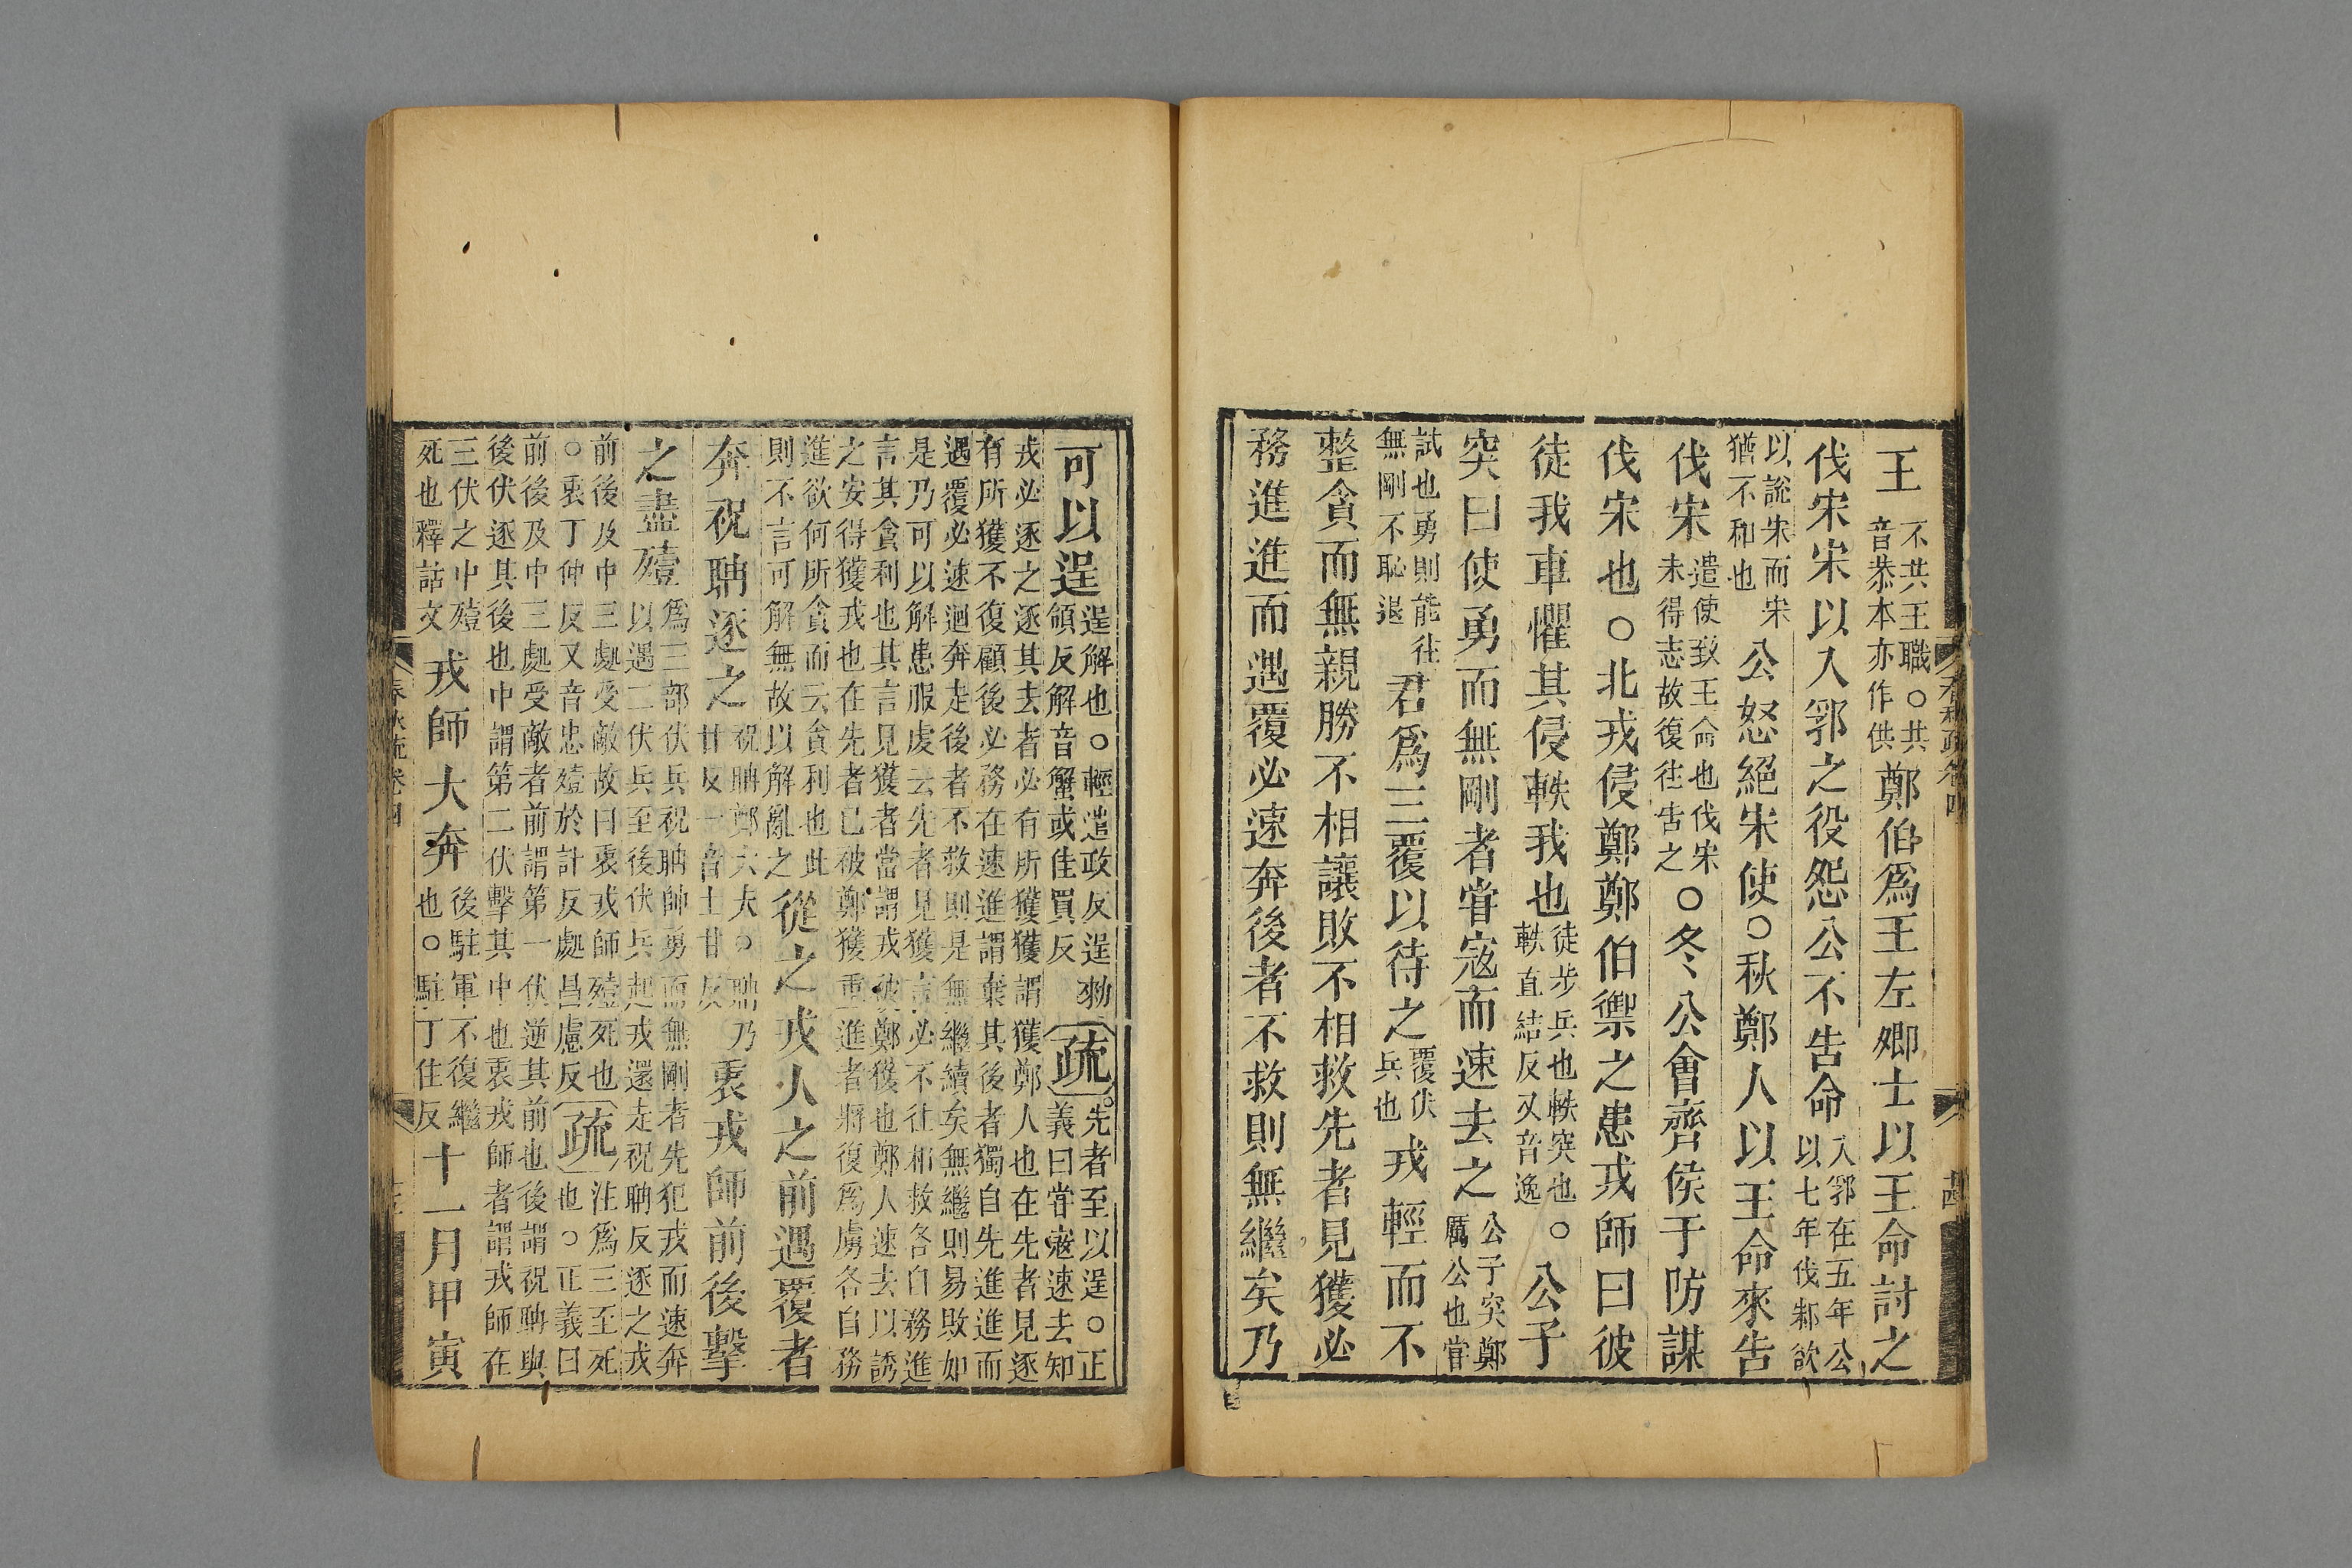 王不共王職○共音恭本亦作供鄭伯爲王左卿士以王命討之
伐宋宋以入郛之役怨公不告命入郛在五年公以七年伐邾欲
以說宋而宋猶不和也公怒絕宋使○秋鄭人以王命來告
伐宋遣使致王命也伐宋未得志故復往告之○冬公會齊侯于防謀
伐宋也○北戎侵鄭鄭伯禦之患戎師曰彼
徒我車懼其侵軼我也徒步兵也軼突也○軼直結反又音逸公子
突曰使勇而無剛者嘗寇而速去之公子突鄭厲公也嘗
試也勇則能往無剛不恥退君爲三覆以待之覆伏兵也戎輕而不
整貪而無親勝不相讓敗不相救先者見獲必
務進進而遇覆必速奔後者不救則無繼矣乃
春秋疏卷四
可以逞逞解也○輕遣政反逞勑領反解音蟹或佳買反疏先者至以逞○正義曰嘗寇速去知
戎必逐之逐其去者必有所獲獲謂獲鄭人也在先者見逐
有所獲不復顧後必務在速進謂棄其後者獨自先進進而
遇覆必速迴奔走後者不救則是無繼續矣無繼則易敗如
是乃可以解患服虔云先者見獲言必不往相救各自務進
言其貪利也其言見獲者當謂戎被鄭獲也鄭人速去以誘
之安得獲戎也在先者已被鄭獲重進者將復爲虜各自務
進欲何所貪而云貪利也此則不言可解無故以解亂之從之戎人之前遇覆者
奔祝聃逐之祝聃鄭大夫○聃乃甘反一音士甘反衷戎師前後擊
之盡殪爲三部伏兵祝聃帥勇而無剛者先犯戎而速奔以遇二伏兵至後伏兵起戎還走祝聃反逐之戎
前後及中三處受敵故曰衷戎師殪死也○衷丁仲反又音忠殪於計反處昌慮反疏注爲三至死也○正義曰
前後及中三處受敵者前謂第一伏逆其前也後謂祝聃與
後伏逐其後也中謂第二伏擊其中也衷戎師者謂戎師在
三伏之中殪死也釋詁文戎師大奔後駐軍不復繼也○駐丁住反十一月甲寅
春秋疏卷四